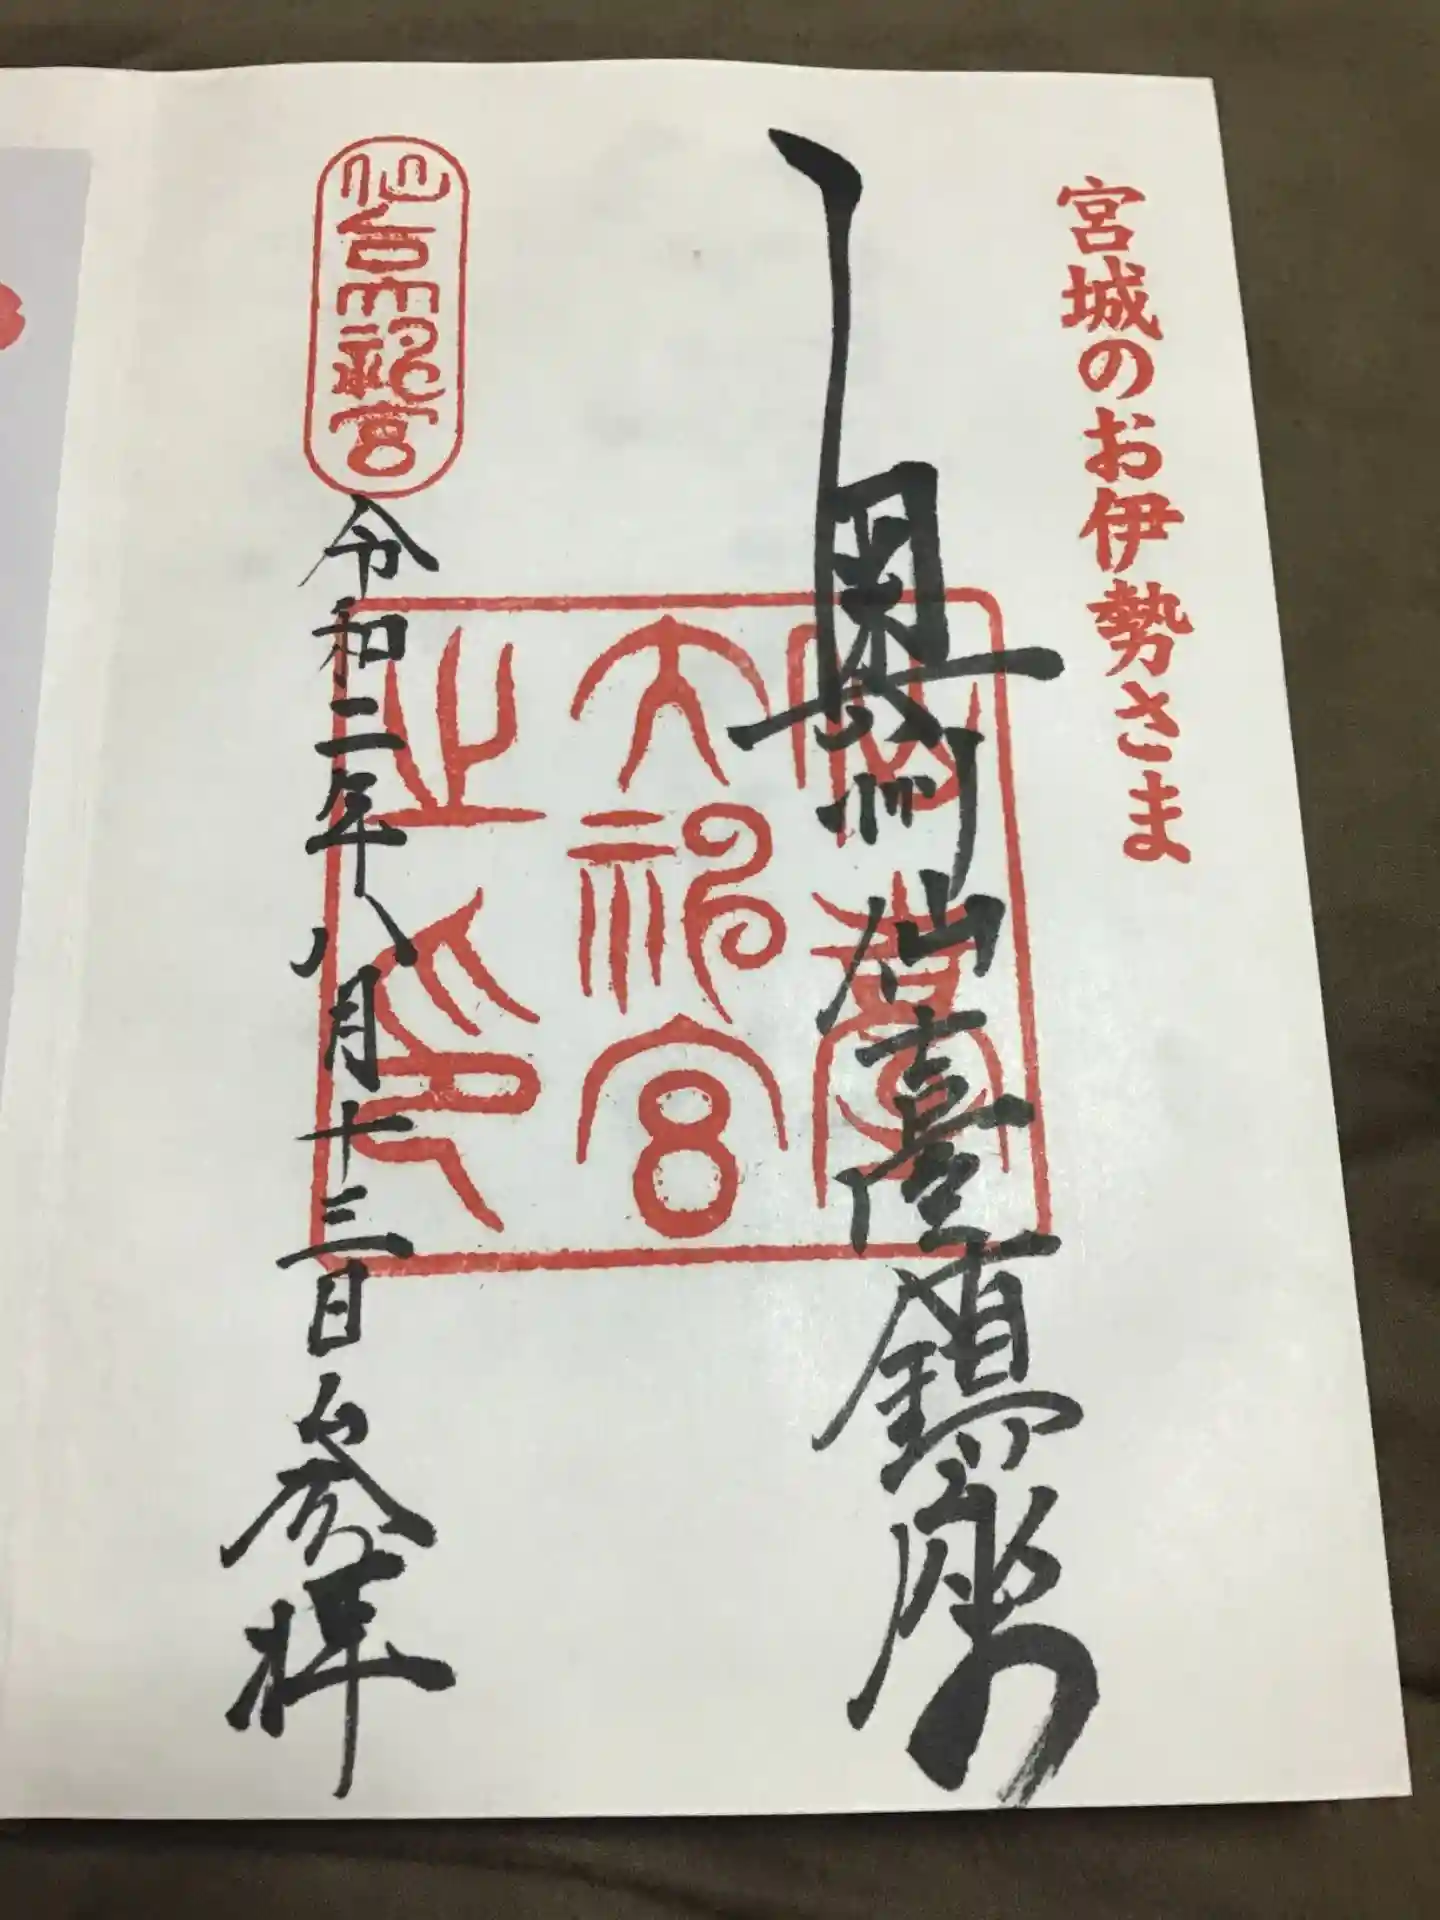 宮城のお伊勢さま
奥州仙臺鎮座
仙臺大神宮之印
仙台大神宮
令和二年八月十三日参拝